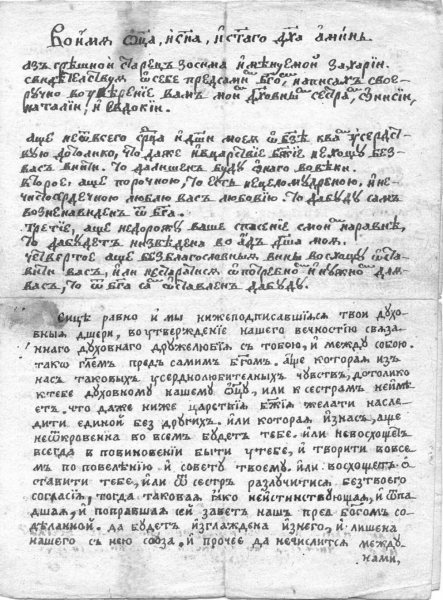 Во имѧ Ѿца, и҆ Сн҃а, и҆ ст҃агѡ Дх҃а а҆минь.
Азъ грѣшной старецъ Зосима и҆менꙋемой Захарїи.
свидѣтелствꙋѧ ѡ҆ себе предсамимъ Бг҃омъ, написахъ свое-
рꙋчно во ᲂу҆вѣренїе вамъ мои дх҃овныѧ сестры,
наталїи, и҆ е҆ѵдокїи.
Аще не ѿ всего срдца и҆ дш҃и моеѧ ѡ҆ бз҃ѣ к вамъ ᲂу҆сердст-
вꙋю дотолико, что даже и҆ в царствїе бж҃їе не хощꙋ без
васъ внити. то да лишенъ бꙋдꙋ ѻ҆наго во вѣки.
Второе, аще порочною, то есть нецеломꙋдреною, и҆ не-
чистосердечною люблю васъ любовїю. то да бꙋдꙋ самъ
возненавиденъ ѿ бг҃а.
Третїе, аще не дорожꙋ ваше спасенїе с моимъ наравнѣ,
то да бꙋдетъ низведена во а҆дъ дш҃а моѧ.
Четвертое аще без благословныѧ вины восхощꙋ ѡ҆ста-
вити васъ, и҆ли не старатисѧ ѡ҆ потребномъ и҆ нꙋжномъ длѧ
васъ, то ѿ бг҃а самъ ѡ҆ставленъ да бꙋдꙋ.
Еще равно и҆ мы нижеподписавшїѧсѧ твои дꙋхо-
вныѧ дщери, во ᲂу҆твержденїе нашего вечностїю свѧза-
ннаго дꙋховнаго дрꙋжелюбїѧ с тобою, и҆ междꙋ собою.
такѡ гл҃емъ предъ самимъ Бг҃омъ. а҆ще которая изъ
насъ таковыхъ ᲂу҆серднолюбителныхъ чꙋвствъ, дотолико
к тебе дꙋховномꙋ нашемꙋ ѿцꙋ, или к сестрамъ не имѣ-
етъ. что даже ниже царствїѧ Бж҃їѧ желати насле-
дити единой без дрꙋгихъ. и҆ли которая и҆з насъ, аще
не ѿкровенна во всемъ бꙋдетъ тебе. и҆ли не восхощетъ
всегда в повиновенїи быти ᲂу҆ тебе, и҆ творити во все-
мъ по повелѣнїю и҆ советꙋ твоемꙋ. и҆ли восхощетъ ѡ҆-
ставити тебе, и҆ли ѿ сестръ разлꙋчитисѧ без твоего
согласїѧ, тогда таковая ꙗ҆ко неистинствꙋющая, и҆ ѿпа-
дшая, и҆ поправшая сей заветъ нашъ предъ Бг҃омъ со-
дѣланной. да бꙋдетъ изглаждена из него, и҆ лишена
нашего с нею союза. и҆ прочее да не числитсѧ междꙋ
нами,